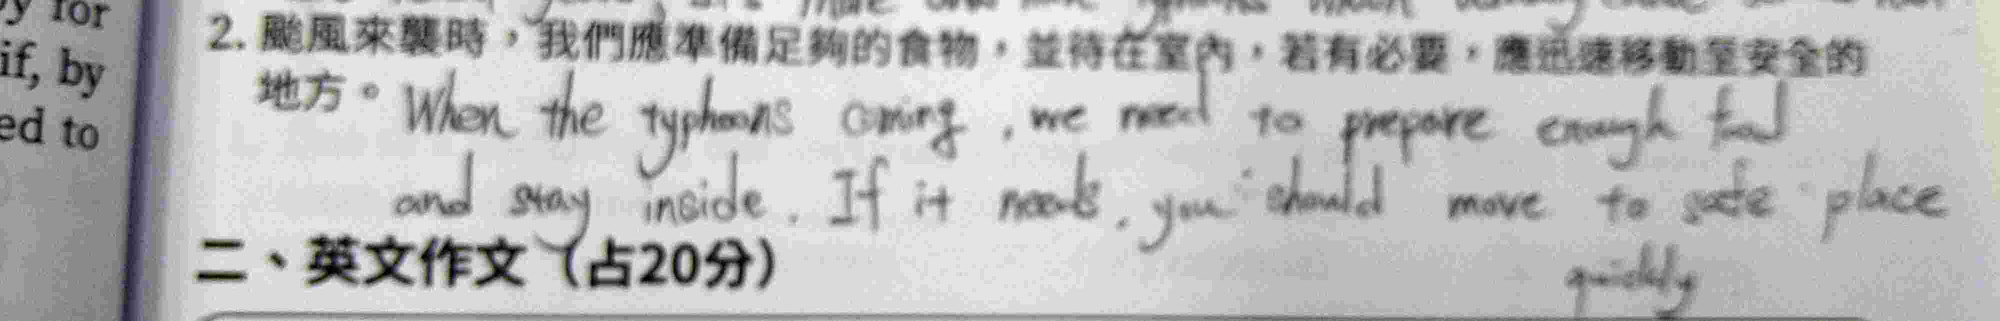 y for
if, by
ed to
2. 颱風來襲時，我們應準備足夠的食物，並待在室內，若有必要，應迅速移動至安全的
地方。When the typhoons coming, we need to prepare enough food
and stay inside. If it needs, you should move to safe place
quickly
二、英文作文（占20分）